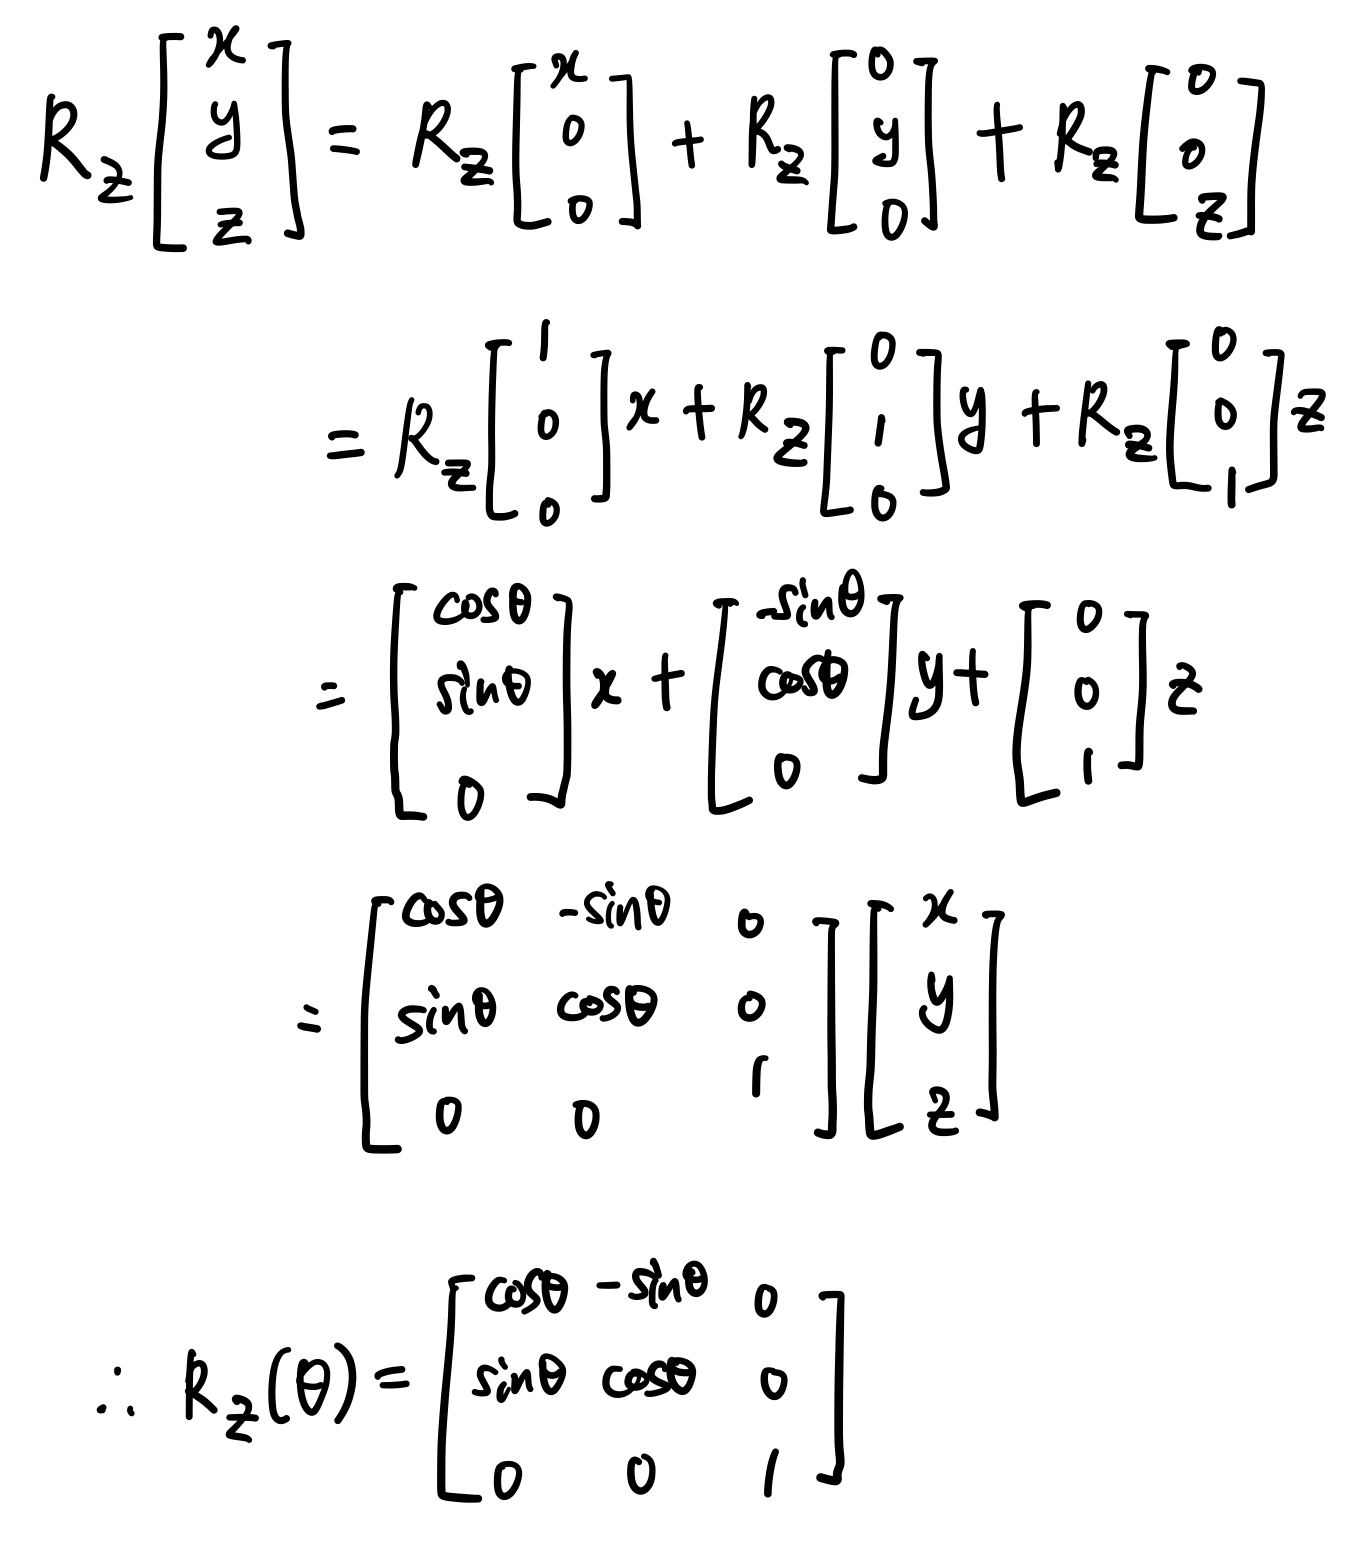 $R_z \begin{bmatrix} x \\ y \\ z \end{bmatrix} = R_z \begin{bmatrix} x \\ 0 \\ 0 \end{bmatrix} + R_z \begin{bmatrix} 0 \\ y \\ 0 \end{bmatrix} + R_z \begin{bmatrix} 0 \\ 0 \\ z \end{bmatrix}$
$= R_z \begin{bmatrix} 1 \\ 0 \\ 0 \end{bmatrix} x + R_z \begin{bmatrix} 0 \\ 1 \\ 0 \end{bmatrix} y + R_z \begin{bmatrix} 0 \\ 0 \\ 1 \end{bmatrix} z$
$= \begin{bmatrix} \cos\theta \\ \sin\theta \\ 0 \end{bmatrix} x + \begin{bmatrix} -\sin\theta \\ \cos\theta \\ 0 \end{bmatrix} y + \begin{bmatrix} 0 \\ 0 \\ 1 \end{bmatrix} z$
$= \begin{bmatrix} \cos\theta & -\sin\theta & 0 \\ \sin\theta & \cos\theta & 0 \\ 0 & 0 & 1 \end{bmatrix} \begin{bmatrix} x \\ y \\ z \end{bmatrix}$
$\therefore R_z(\theta) = \begin{bmatrix} \cos\theta & -\sin\theta & 0 \\ \sin\theta & \cos\theta & 0 \\ 0 & 0 & 1 \end{bmatrix}$